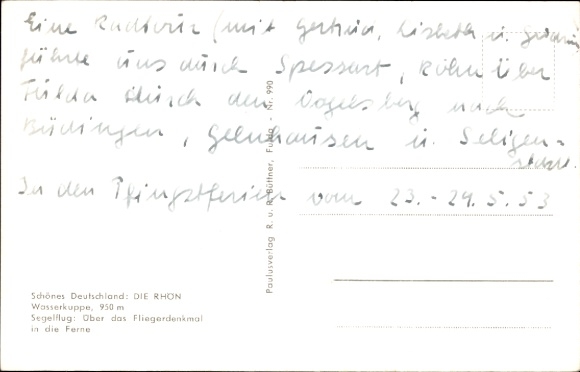 Eine Radtour (mit Gertrud, Lisbeth u.
führte uns durch Spessart, Röhn über
Fulda durch den Vogelsberg nach
Büdingen, Gelnhausen u. Seligen=
stadt.
In den Pfingstferien vom 23.-29.5.53
Paulusverlag R. u. R. Büttner, Fulda - Nr. 990
Schönes Deutschland: DIE RHÖN
Wasserkuppe, 950 m
Segelflug: Über das Fliegerdenkmal
in die Ferne